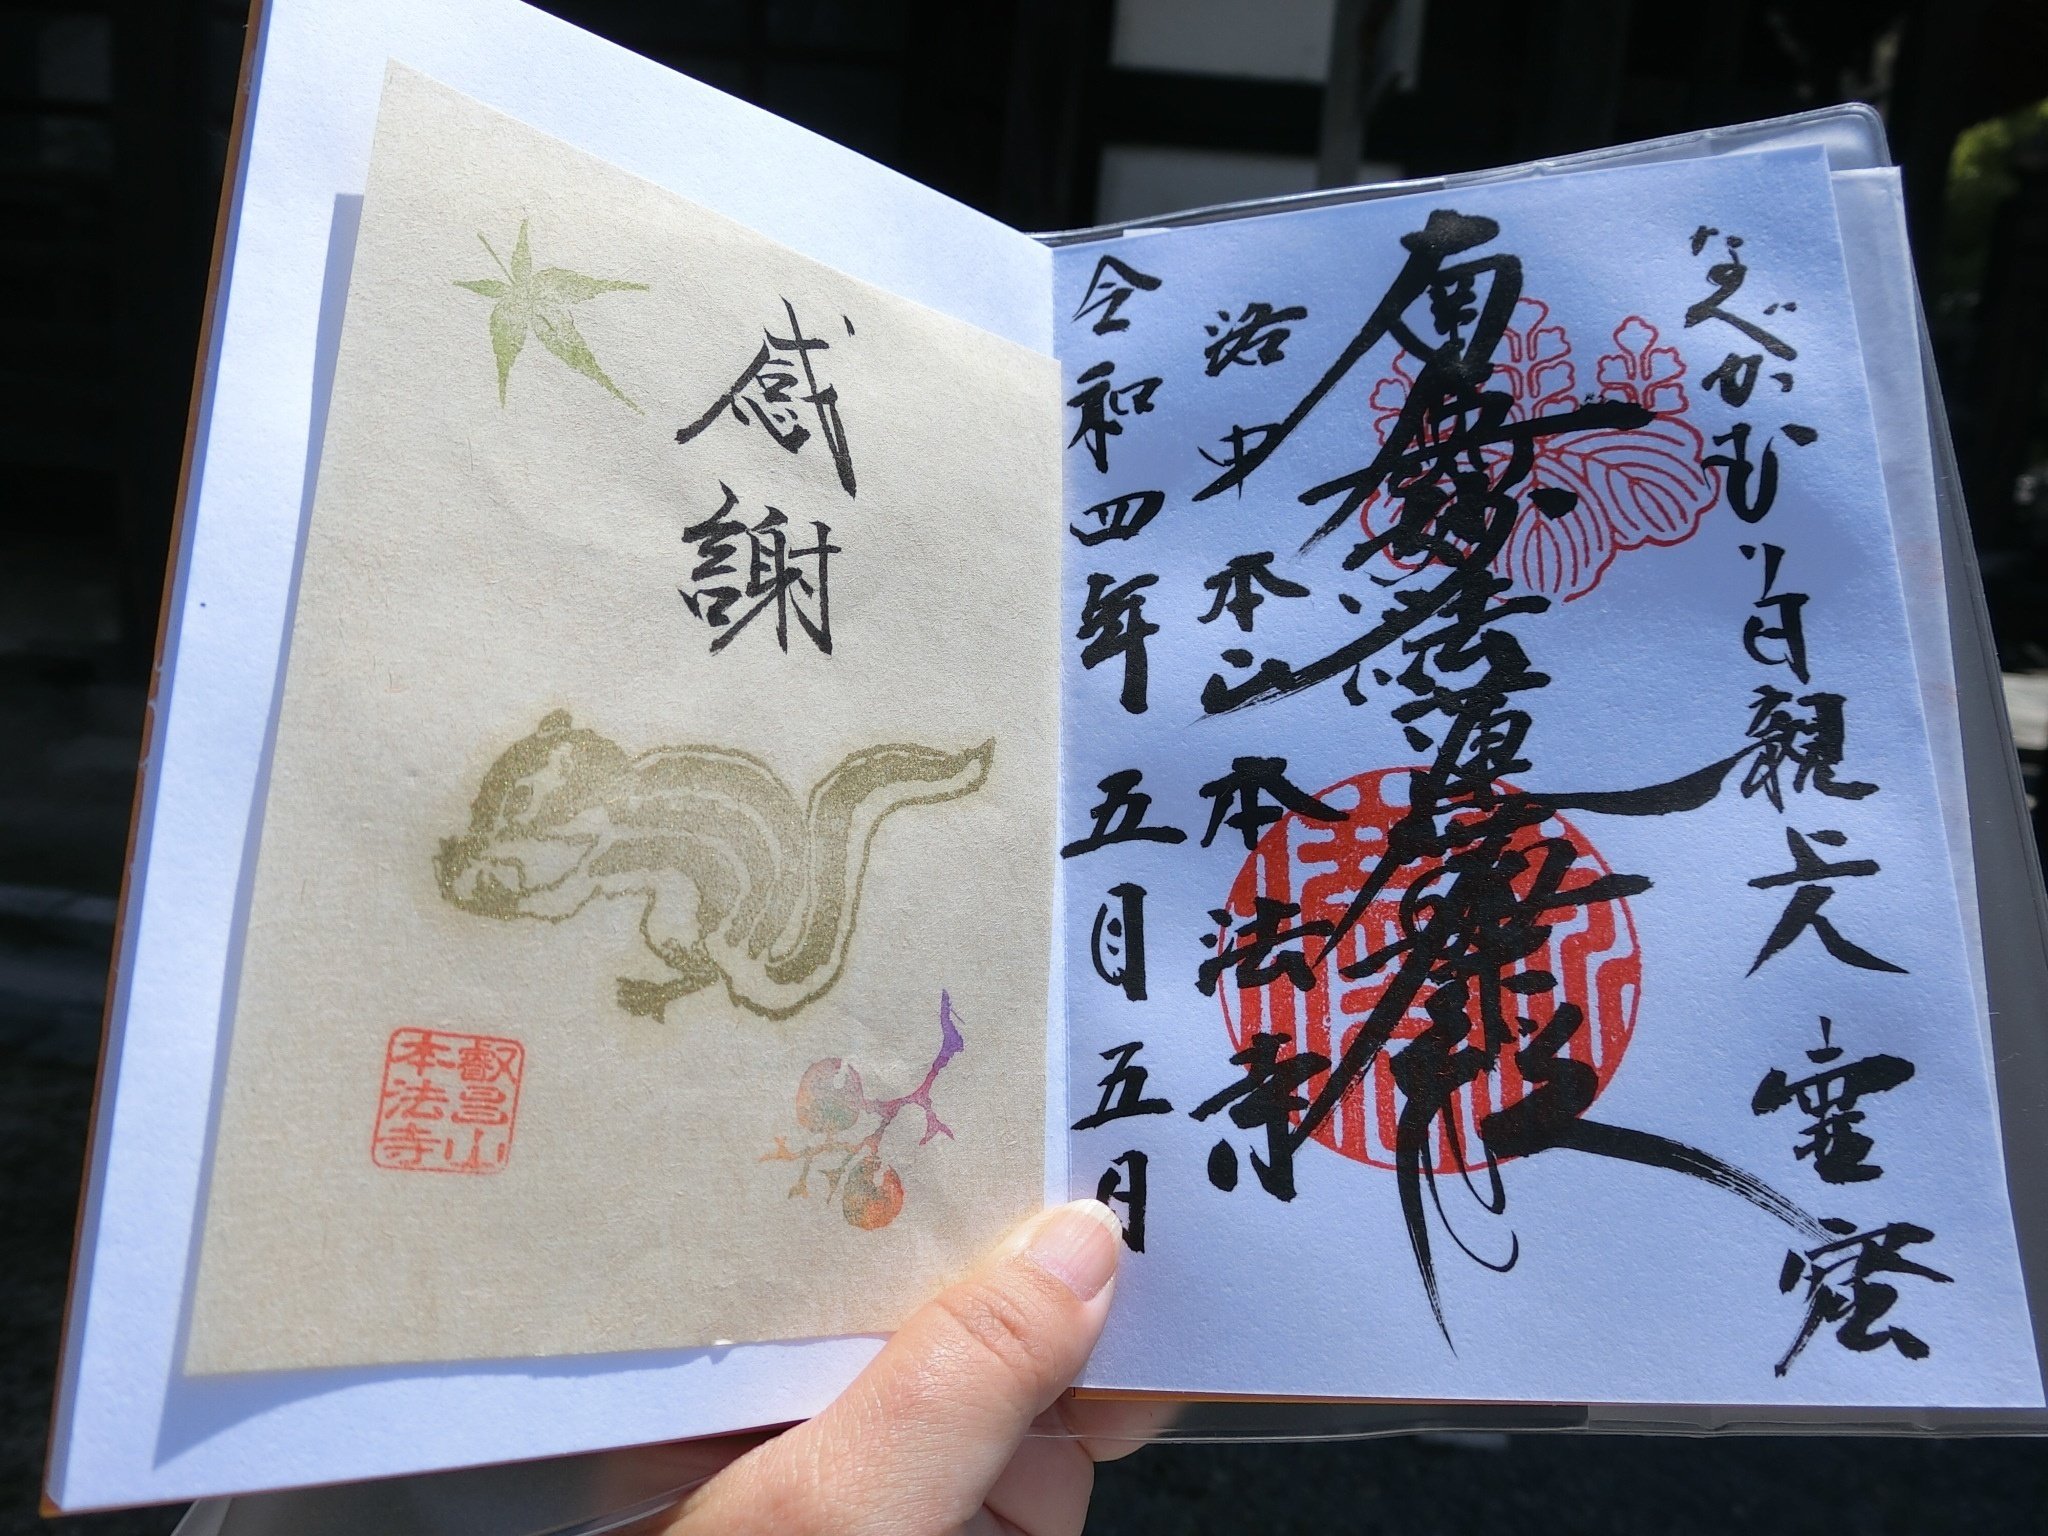 なべかむり日親上人 霊窟
南無妙法蓮華経
洛中 本山 本法寺
令和四年 五月 五日
感謝
叡昌山
本法寺